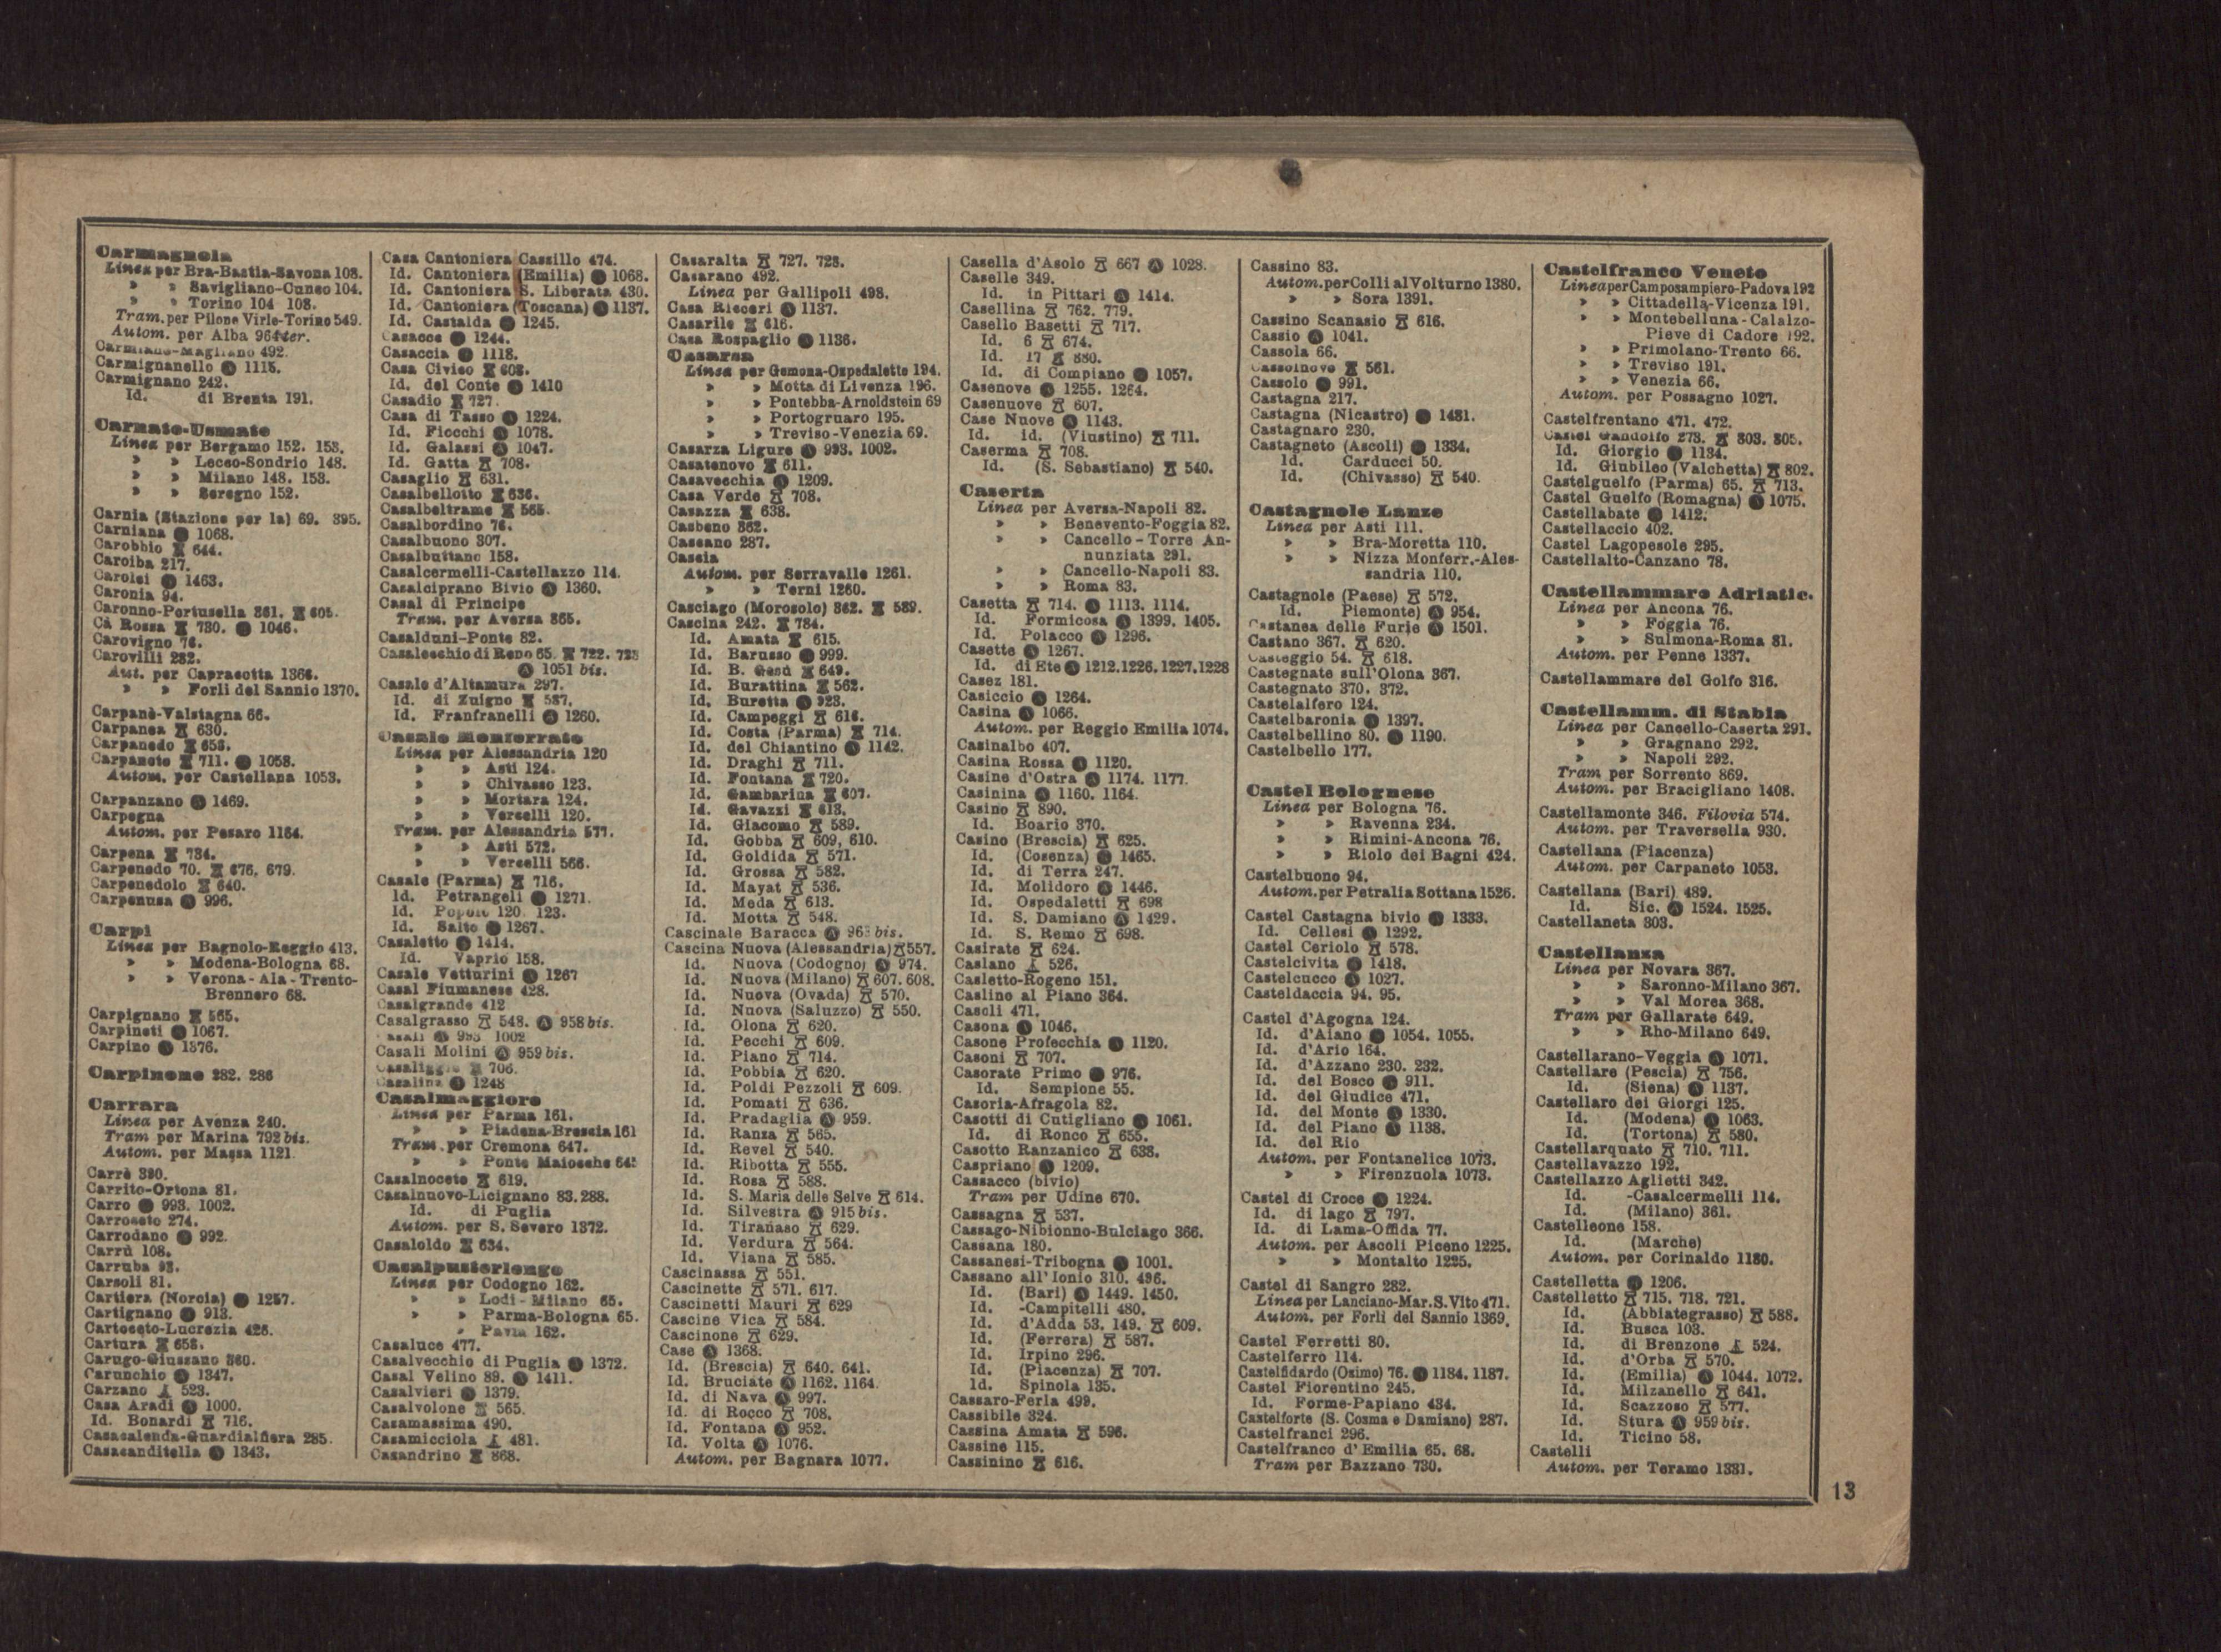 Carmagnola
Linea per Bra-Bastia-Savona 108.
» » Savigliano-Cuneo 104.
» » Torino 104 108.
Tram. per Pilone Virle-Torino 549.
Autom. per Alba 964ter.
Carmiano-Magliano 492.
Carmignanello Ⓐ 1115.
Carmignano 242.
Id. di Brenta 191.
Carnate-Usmate
Linea per Bergamo 152. 153.
» » Lecco-Sondrio 148.
» » Milano 148. 153.
» » Seregno 152.
Carnia (Stazione per la) 69. 395.
Carniana Ⓐ 1068.
Carobbio 644.
Caroiba 217.
Carolei Ⓐ 1463.
Caronia 94.
Caronno-Pertusella 361. 605.
Cà Rossa 730. Ⓐ 1046.
Carovigno 76.
Carovilli 282.
Aut. per Capracotta 1366.
» » Forlì del Sannio 1370.
Carpanè-Valstagna 66.
Carpanea 630.
Carpanedo 653.
Carpaneto 711. Ⓐ 1058.
Autom. per Castellana 1053.
Carpanzano Ⓐ 1469.
Carpegna
Autom. per Pesaro 1164.
Carpena 734.
Carpenedo 70. 676. 679.
Carpenedolo 640.
Carpenusa Ⓐ 996.
Carpi
Linea per Bagnolo-Reggio 413.
» » Modena-Bologna 68.
» » Verona-Ala-Trento-
Brennero 68.
Carpignano 565.
Carpineti Ⓐ 1067.
Carpino Ⓐ 1376.
Carpinone 282. 286
Carrara
Linea per Avenza 240.
Tram per Marina 792 bis.
Autom. per Massa 1121
Carrè 390.
Carrito-Ortona 81.
Carro Ⓐ 993. 1002.
Carroceto 274.
Carrodano Ⓐ 992.
Carrù 108.
Carruba 93.
Carsoli 81.
Cartiera (Norcia) Ⓐ 1257.
Cartignano Ⓐ 913.
Cartoceto-Lucrezia 426.
Cartura 653.
Carugo-Giussano 360.
Carunchio Ⓐ 1347.
Carzano 523.
Casa Aradi Ⓐ 1000.
Id. Bonardi 716.
Casacalenda-Guardialfiera 285.
Casacanditella Ⓐ 1343.
Casa Cantoniera Cassillo 474.
Id. Cantoniera (Emilia) Ⓐ 1068.
Id. Cantoniera S. Liberata 430.
Id. Cantoniera (Toscana) Ⓐ 1137.
Id. Castalda Ⓐ 1245.
Casacce Ⓐ 1244.
Casaccia Ⓐ 1118.
Casa Civico 608.
Id. del Conte Ⓐ 1410
Casadio 727.
Casa di Tasso Ⓐ 1224.
Id. Fiocchi Ⓐ 1078.
Id. Galassi Ⓐ 1047.
Id. Gatta 708.
Casaglio 631.
Casalbellotto 636.
Casalbeltrame 565.
Casalbordino 76.
Casalbuono 307.
Casalbuttano 158.
Casalcermelli-Castellazzo 114.
Casalciprano Bivio Ⓐ 1360.
Casal di Principe
Tram. per Aversa 865.
Casalduni-Ponte 82.
Casalecchio di Reno 65. 722. 723
Ⓐ 1051 bis.
Casale d'Altamura 297.
Id. di Zuigno 587.
Id. Franfranelli Ⓐ 1260.
Casale Monferrato
Linea per Alessandria 120
» » Asti 124.
» » Chivasso 123.
» » Mortara 124.
» » Vercelli 120.
Tram. per Alessandria 577.
» » Asti 572.
» » Vercelli 566.
Casale (Parma) 716.
Id. Petrangeli Ⓐ 1271.
Id. Popolo 120. 123.
Id. Salto Ⓐ 1267.
Casaletto Ⓐ 1414.
Id. Vaprio 158.
Casale Vetturini Ⓐ 1267
Casal Fiumanese 428.
Casalgrande 412
Casalgrasso 548. Ⓐ 958 bis.
Casali Ⓐ 993 1002
Casali Molini Ⓐ 959 bis.
Casaliggio 706.
Casalina Ⓐ 1248
Casalmaggiore
Linea per Parma 161.
» » Piadena-Brescia 161
Tram. per Cremona 647.
» » Ponte Maiocche 645
Casalnoceto 619.
Casalnuovo-Licignano 83. 288.
Id. di Puglia
Autom. per S. Severo 1372.
Casaloldo 634.
Casalpusterlengo
Linea per Codogno 162.
» » Lodi-Milano 65.
» » Parma-Bologna 65.
» Pavia 162.
Casaluce 477.
Casalvecchio di Puglia Ⓐ 1372.
Casal Velino 89. Ⓐ 1411.
Casalvieri Ⓐ 1379.
Casalvolone 565.
Casamassima 490.
Casamicciola 481.
Casandrino 868.
Casaralta 727. 728.
Casarano 492.
Linea per Gallipoli 498.
Casa Ricceri Ⓐ 1137.
Casarile 616.
Casa Rospaglio Ⓐ 1136.
Casarsa
Linea per Gemona-Ospedaletto 194.
» » Motta di Livenza 196.
» » Pontebba-Arnoldstein 69
» » Portogruaro 195.
» » Treviso-Venezia 69.
Casarza Ligure Ⓐ 993. 1002.
Casatenovo 611.
Casavecchia Ⓐ 1209.
Casa Verde 708.
Casazza 638.
Casbeno 362.
Cascano 287.
Cascia
Autom. per Serravalle 1261.
» » Terni 1260.
Casciago (Morosolo) 362. 589.
Cascina 242. 784.
Id. Amata 615.
Id. Barusso Ⓐ 999.
Id. B. Gesù 649.
Id. Burattina 562.
Id. Buretta Ⓐ 923.
Id. Campeggi 616.
Id. Costa (Parma) 714.
Id. del Chiantino Ⓐ 1142.
Id. Draghi 711.
Id. Fontana 720.
Id. Gambarina 607.
Id. Gavazzi 613.
Id. Giacomo 589.
Id. Gobba 609, 610.
Id. Goldida 571.
Id. Grossa 582.
Id. Mayat 536.
Id. Meda 613.
Id. Motta 548.
Cascinale Baracca Ⓐ 963 bis.
Cascina Nuova (Alessandria) 557.
Id. Nuova (Codogno) Ⓐ 974.
Id. Nuova (Milano) 607. 608.
Id. Nuova (Ovada) 570.
Id. Nuova (Saluzzo) 550.
Id. Olona 620.
Id. Pecchi 609.
Id. Piano 714.
Id. Pobbia 620.
Id. Poldi Pezzoli 609.
Id. Pomati 636.
Id. Pradaglia Ⓐ 959.
Id. Ranza 565.
Id. Revel 540.
Id. Ribotta 555.
Id. Rosa 588.
Id. S. Maria delle Selve 614.
Id. Silvestra Ⓐ 915 bis.
Id. Tiranaso 629.
Id. Verdura 564.
Id. Viana 585.
Cascinassa 551.
Cascinette 571. 617.
Cascinetti Mauri 629
Cascine Vica 584.
Cascinone 629.
Case Ⓐ 1368.
Id. (Brescia) 640. 641.
Id. Bruciate Ⓐ 1162. 1164.
Id. di Nava Ⓐ 997.
Id. di Rocco 708.
Id. Fontana Ⓐ 952.
Id. Volta Ⓐ 1076.
Autom. per Bagnara 1077.
Casella d'Asolo 667 Ⓐ 1028.
Caselle 349.
Id. in Pittari Ⓐ 1414.
Casellina 762. 779.
Casello Basetti 717.
Id. 6 674.
Id. 17 880.
Id. di Compiano Ⓐ 1057.
Casenove Ⓐ 1255. 1264.
Casenuove 607.
Case Nuove Ⓐ 1143.
Id. id. (Viustino) 711.
Caserma 708.
Id. (S. Sebastiano) 540.
Caserta
Linea per Aversa-Napoli 82.
» » Benevento-Foggia 82.
» » Cancello-Torre An-
nunziata 291.
» » Cancello-Napoli 83.
» » Roma 83.
Casetta 714. Ⓐ 1113. 1114.
Id. Formicosa Ⓐ 1399. 1405.
Id. Polacco Ⓐ 1296.
Casette Ⓐ 1267.
Id. di Ete Ⓐ 1212.1226.1227.1228
Casez 181.
Casiccio Ⓐ 1264.
Casina Ⓐ 1066.
Autom. per Reggio Emilia 1074.
Casinalbo 407.
Casina Rossa Ⓐ 1120.
Casine d'Ostra Ⓐ 1174. 1177.
Casinina Ⓐ 1160. 1164.
Casino 890.
Id. Boario 370.
Casino (Brescia) 625.
Id. (Cosenza) Ⓐ 1465.
Id. di Terra 247.
Id. Molidoro Ⓐ 1446.
Id. Ospedaletti 698
Id. S. Damiano Ⓐ 1429.
Id. S. Remo 698.
Casirate 624.
Caslano 526.
Casletto-Rogeno 151.
Caslino al Piano 364.
Casoli 471.
Casona Ⓐ 1046.
Casone Profecchia Ⓐ 1120.
Casoni 707.
Casorate Primo Ⓐ 976.
Id. Sempione 55.
Casoria-Afragola 82.
Casotti di Cutigliano Ⓐ 1061.
Id. di Ronco 655.
Casotto Ranzanico 638.
Caspriano Ⓐ 1209.
Cassacco (bivio)
Tram per Udine 670.
Cassagna 537.
Cassago-Nibionno-Bulciago 366.
Cassana 180.
Cassanesi-Tribogna Ⓐ 1001.
Cassano all'Ionio 310. 496.
Id. (Bari) Ⓐ 1449. 1450.
Id. -Campitelli 480.
Id. d'Adda 53. 149. 609.
Id. (Ferrera) 587.
Id. Irpino 296.
Id. (Piacenza) 707.
Id. Spinola 135.
Cassaro-Ferla 499.
Cassibile 324.
Cassina Amata 596.
Cassine 115.
Cassinino 616.
Cassino 83.
Autom. per Colli al Volturno 1380.
» » Sora 1391.
Cassino Scanasio 616.
Cassio Ⓐ 1041.
Cassola 66.
Cassolnovo 561.
Cassolo Ⓐ 991.
Castagna 217.
Castagna (Nicastro) Ⓐ 1481.
Castagnaro 230.
Castagneto (Ascoli) Ⓐ 1334.
Id. Carducci 50.
Id. (Chivasso) 540.
Castagnole Lanze
Linea per Asti 111.
» » Bra-Moretta 110.
» » Nizza Monferr.-Ales-
sandria 110.
Castagnole (Paese) 572.
Id. Piemonte) Ⓐ 954.
Castanea delle Furie Ⓐ 1501.
Castano 367. 620.
Casteggio 54. 618.
Castegnate sull'Olona 367.
Castegnato 370. 372.
Castelalfero 124.
Castelbaronia Ⓐ 1397.
Castelbellino 80. Ⓐ 1190.
Castelbello 177.
Castel Bolognese
Linea per Bologna 76.
» » Ravenna 234.
» » Rimini-Ancona 76.
» » Riolo dei Bagni 424.
Castelbuono 94.
Autom. per Petralia Sottana 1526.
Castel Castagna bivio Ⓐ 1333.
Id. Cellesi Ⓐ 1292.
Castel Ceriolo 578.
Castelcivita Ⓐ 1418.
Castelcucco Ⓐ 1027.
Casteldaccia 94. 95.
Castel d'Agogna 124.
Id. d'Aiano Ⓐ 1054. 1055.
Id. d'Ario 164.
Id. d'Azzano 230. 232.
Id. del Bosco Ⓐ 911.
Id. del Giudice 471.
Id. del Monte Ⓐ 1330.
Id. del Piano Ⓐ 1138.
Id. del Rio
Autom. per Fontanelice 1073.
» » Firenzuola 1073.
Castel di Croce Ⓐ 1224.
Id. di lago 797.
Id. di Lama-Offida 77.
Autom. per Ascoli Piceno 1225.
» » Montalto 1225.
Castel di Sangro 282.
Linea per Lanciano-Mar.S.Vito 471.
Autom. per Forlì del Sannio 1369.
Castel Ferretti 80.
Castelferro 114.
Castelfidardo (Osimo) 76. Ⓐ 1184. 1187.
Castel Fiorentino 245.
Id. Forme-Papiano 434.
Castelforte (S. Cosma e Damiano) 287.
Castelfranci 296.
Castelfranco d'Emilia 65. 68.
Tram per Bazzano 730.
Castelfranco Veneto
Linea per Camposampiero-Padova 192
» » Cittadella-Vicenza 191.
» » Montebelluna-Calalzo-
Pieve di Cadore 192.
» » Primolano-Trento 66.
» » Treviso 191.
» » Venezia 66.
Autom. per Possagno 1027.
Castelfrentano 471. 472.
Castel Gandolfo 278. 803. 805.
Id. Giorgio Ⓐ 1134.
Id. Giubileo (Valchetta) 802.
Castelguelfo (Parma) 65. 713.
Castel Guelfo (Romagna) Ⓐ 1075.
Castellabate Ⓐ 1412.
Castellaccio 402.
Castel Lagopesole 295.
Castellalto-Canzano 78.
Castellammare Adriatic.
Linea per Ancona 76.
» » Foggia 76.
» » Sulmona-Roma 81.
Autom. per Penne 1337.
Castellammare del Golfo 316.
Castellamm. di Stabia
Linea per Cancello-Caserta 291.
» » Gragnano 292.
» » Napoli 292.
Tram per Sorrento 869.
Autom. per Bracigliano 1408.
Castellamonte 346. Filovia 574.
Autom. per Traversella 930.
Castellana (Piacenza)
Autom. per Carpaneto 1053.
Castellana (Bari) 489.
Id. Sic. Ⓐ 1524. 1525.
Castellaneta 303.
Castellanza
Linea per Novara 367.
» » Saronno-Milano 367.
» » Val Morea 368.
Tram per Gallarate 649.
» » Rho-Milano 649.
Castellarano-Veggia Ⓐ 1071.
Castellare (Pescia) 756.
Id. (Siena) Ⓐ 1137.
Castellaro dei Giorgi 125.
Id. (Modena) Ⓐ 1063.
Id. (Tortona) 580.
Castellarquato 710. 711.
Castellavazzo 192.
Castellazzo Aglietti 342.
Id. -Casalcermelli 114.
Id. (Milano) 361.
Castelleone 158.
Id. (Marche)
Autom. per Corinaldo 1180.
Castelletta Ⓐ 1206.
Castelletto 715. 718. 721.
Id. (Abbiategrasso) 588.
Id. Busca 103.
Id. di Brenzone 524.
Id. d'Orba 570.
Id. (Emilia) Ⓐ 1044. 1072.
Id. Milzanello 641.
Id. Scazzoso 577.
Id. Stura Ⓐ 959 bis.
Id. Ticino 58.
Castelli
Autom. per Teramo 1331.
13